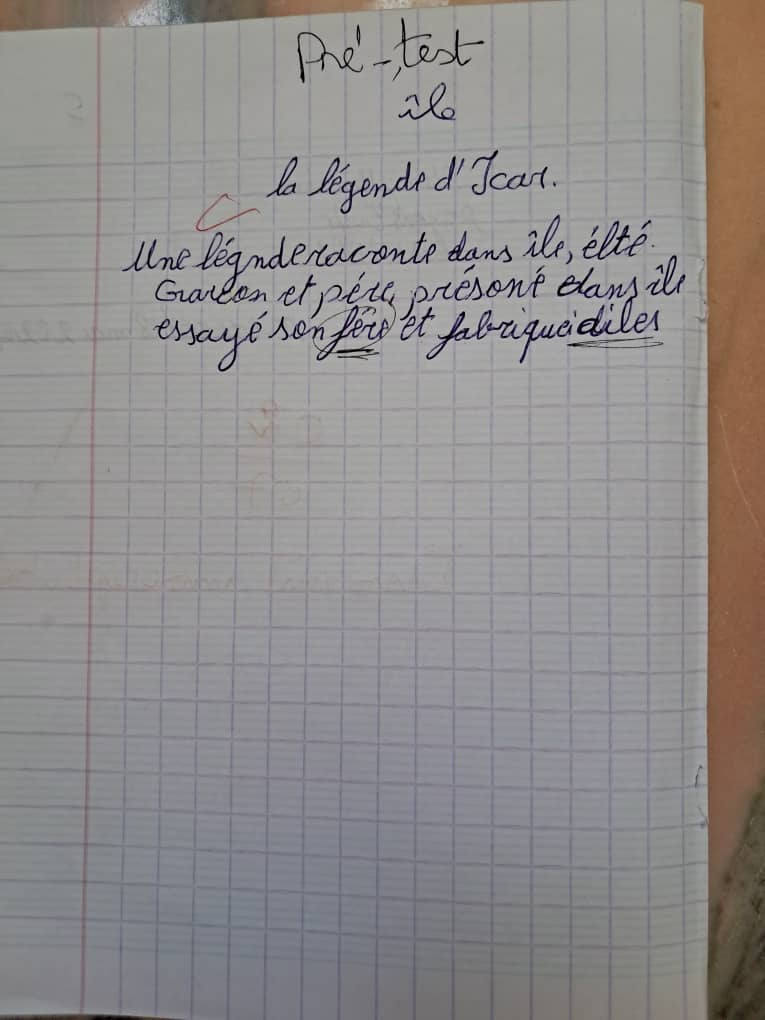 Pré-test
île
la légende d'Icar.
Une légnde raconte dans île, élté.
Garcon et père, présoné dans île
essayé son fére et fabriquei diles